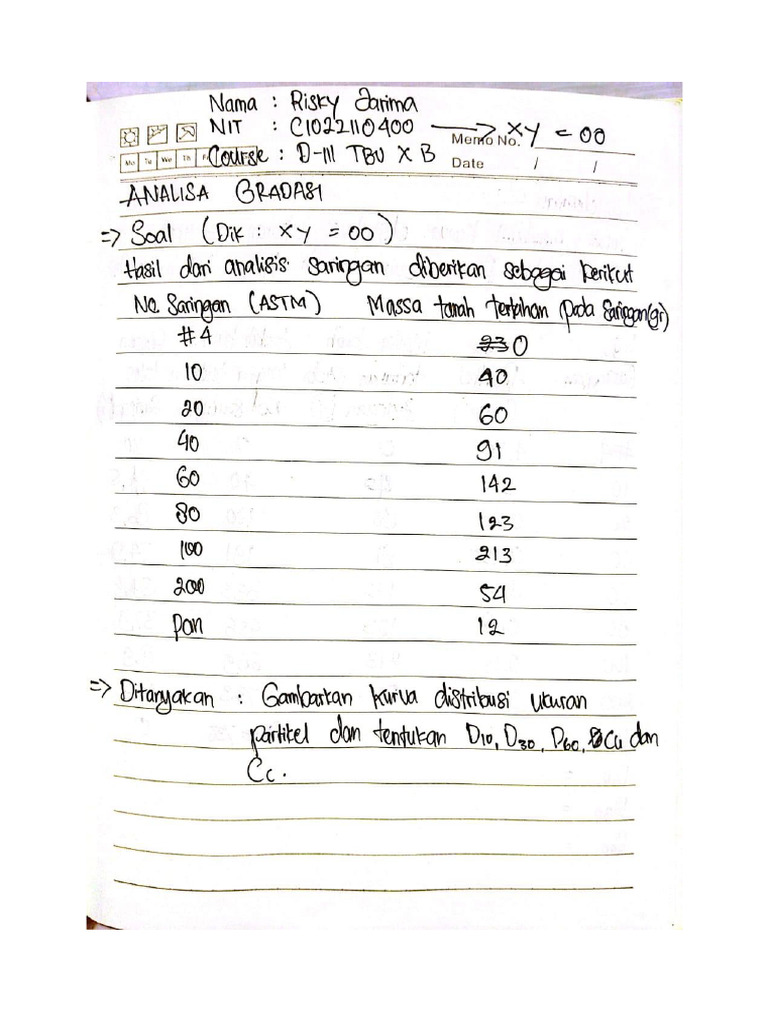 Nama : Risky Jarima
NIT : C1022110400 → XY = 00
Memo No.
Mo Tu We Th F Course : D-III TBU X B
Date / /
ANALISA GRADASI
=> Soal (Dik : XY = 00)
Hasil dari analisis saringan diberikan sebagai berikut
No. Saringan (ASTM) Massa tanah tertahan pada saringan (gr)
#4 230 0
10 40
20 60
40 91
60 142
80 123
100 213
200 54
Pan 12
=> Ditanyakan : Gambarkan kurva distribusi ukuran
partikel dan tentukan D10, D30, D60, Cu dan
Cc.